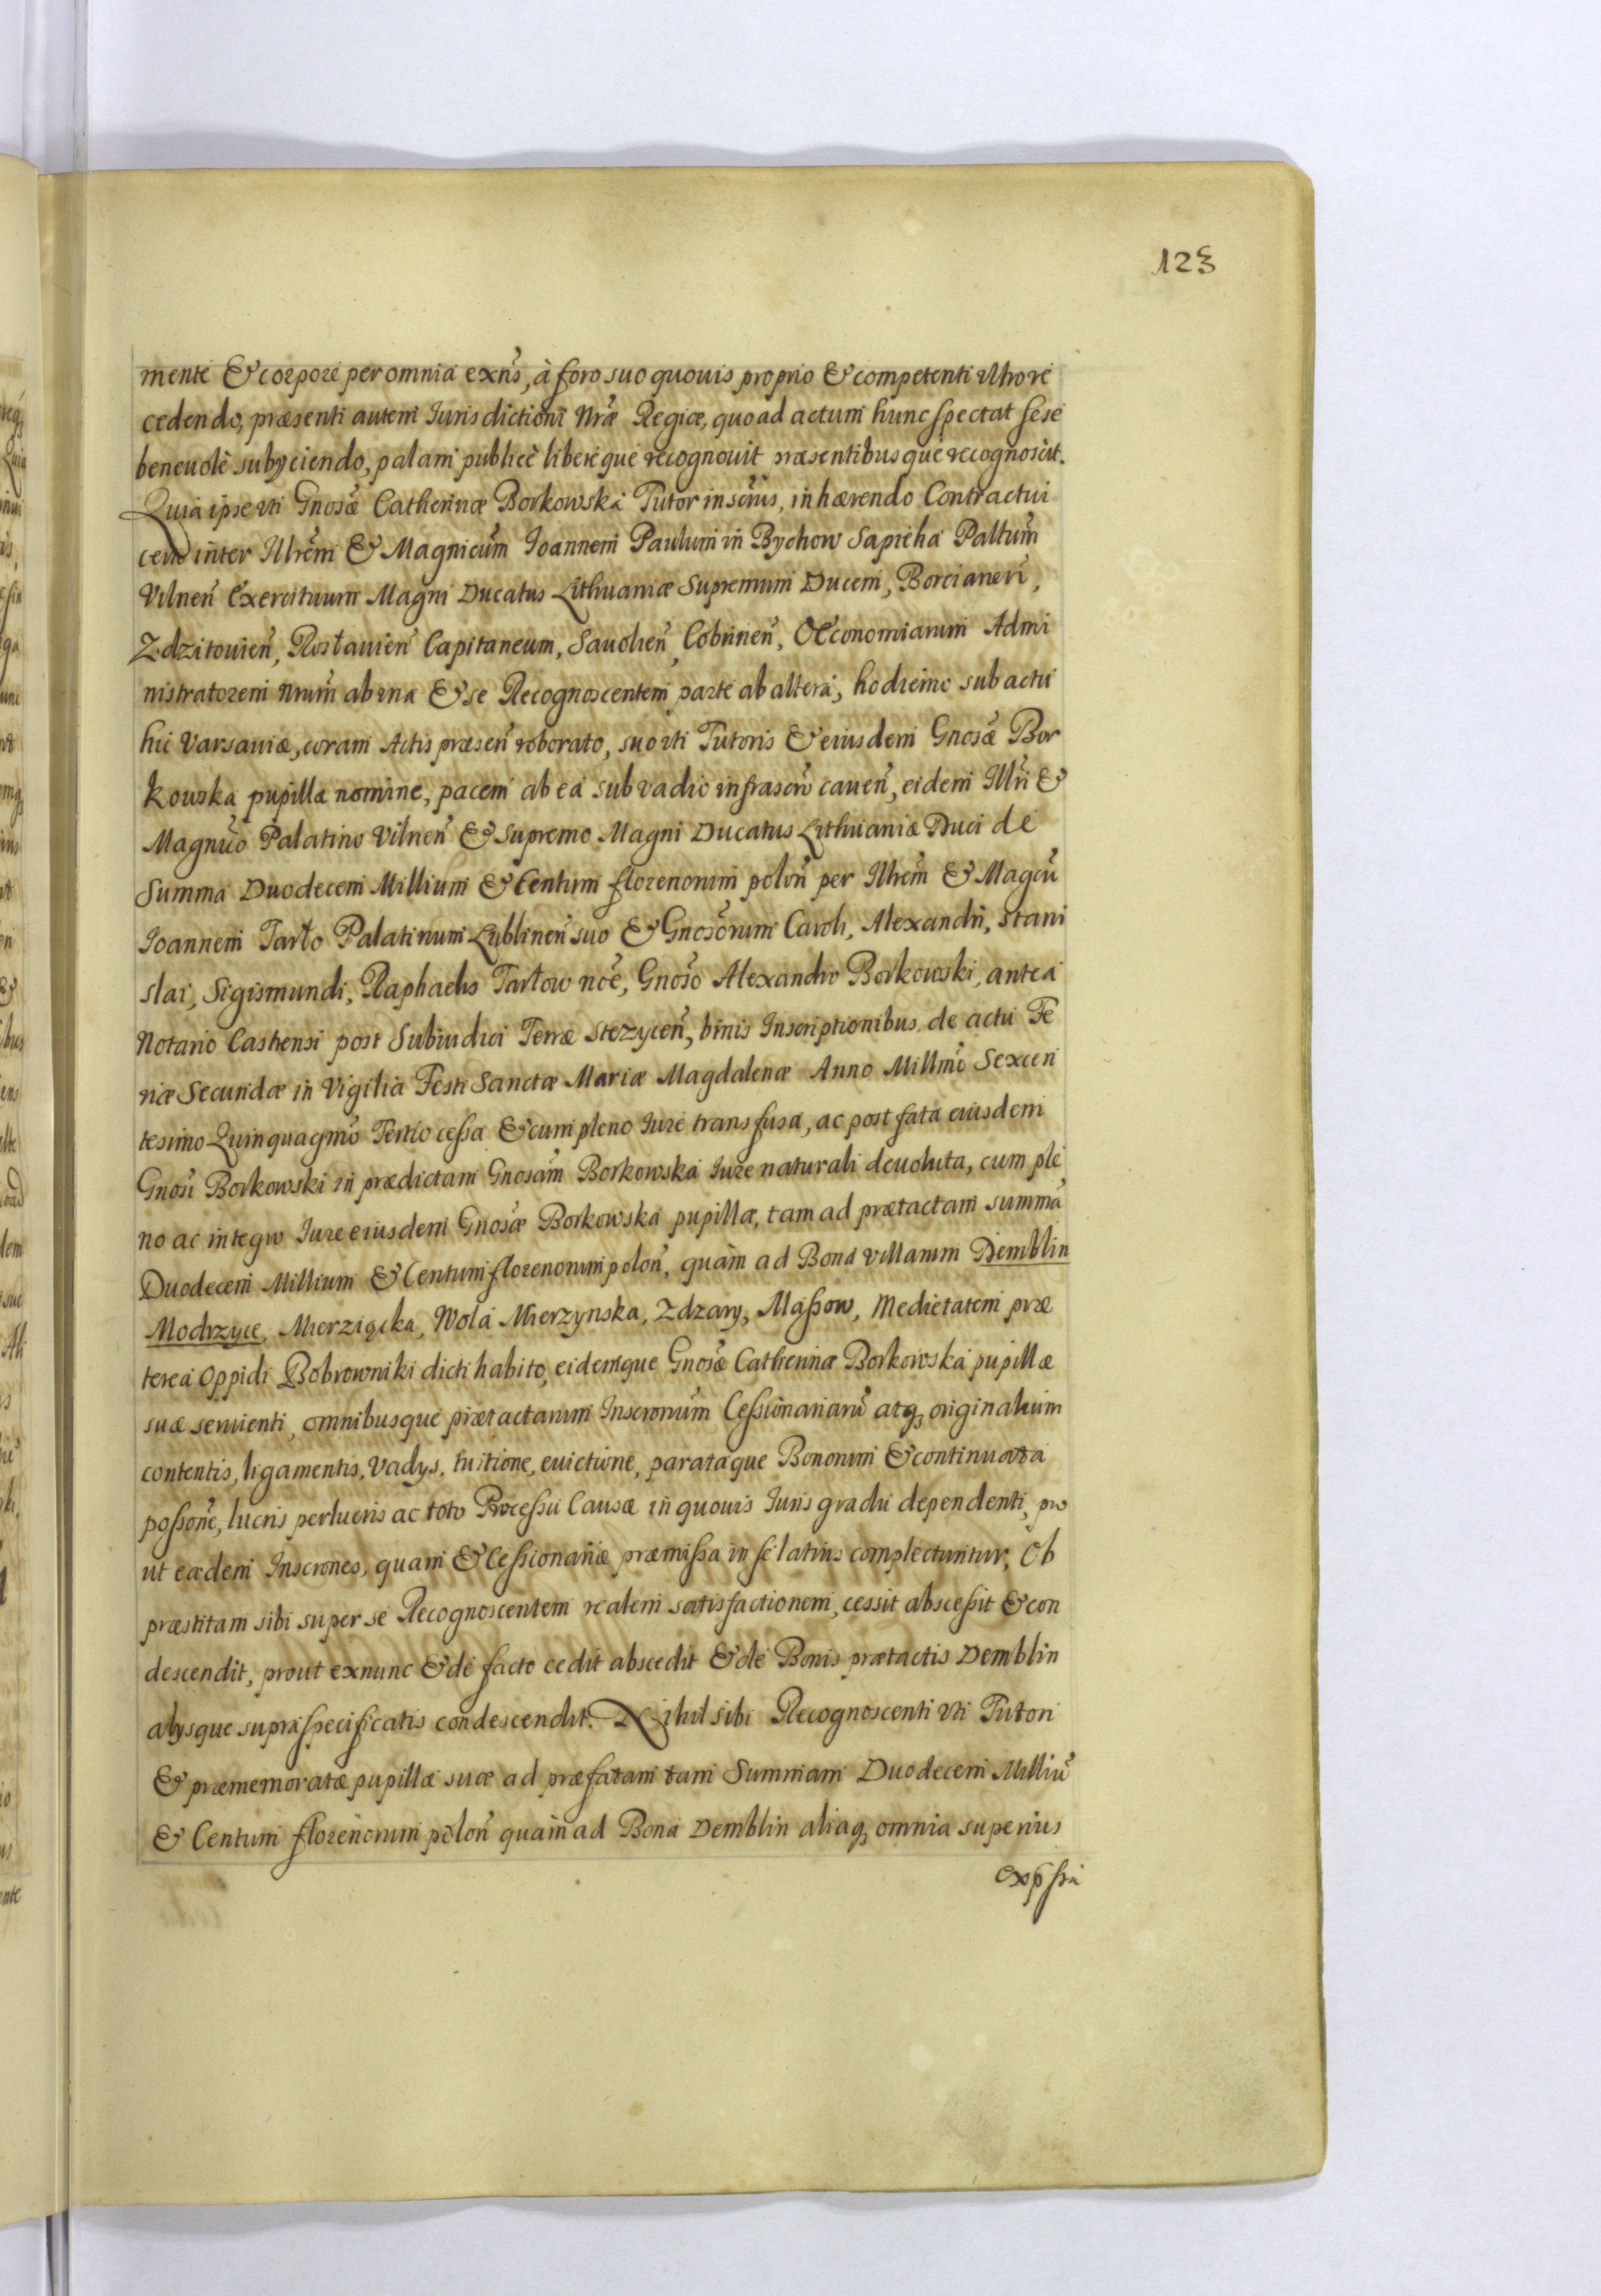 123
mente & corpore per omnia exñs, à foro suo quouis proprio & competenti vltro re
cedendo, præsenti autem Iurisdictioni Nræ Regiæ, quoad actum hunc spectat sese
beneuolè subyciendo, palam publicè libereque recognouit præsentibusque recognoscit.
Quia ipse vti Gnosæ Catherinæ Borkowska Tutor inscrius, inhærendo Contractui
certo inter Illrem & Magnicum Ioannem Paulum in Bychow Sapieha Paltum
Vilnen̄ Exercituum Magni Ducatus Lithuaniæ Supremum Ducem, Borcianen̄,
Zdzitouien̄, Rosławien̄ Capitaneum, Sauolien̄, Cobrinen̄, Œconomiarum Admi
nistratorem Nrum̄ ab vna & se Recognoscentem parte ab altera, hodierno sub actu
hic Varsauiæ, coram Actis præsen̄ roborato, suo vti Tutoris & eiusdem Gnosæ Bor
kowska pupillæ nomine, pacem ab ea sub vadio infrascrō cauen̄, eidem Illri &
Magnco Palatino Vilnen̄ & Supremo Magni Ducatus Lithuaniæ Duci de
Summa Duodecem Millium & Centum florenorum polon̄ per Illrem & Magcū
Ioannem Tarło Palatinum Lublinen̄ suo & Gnosorum Caroli, Alexandri, Stani
slai, Sigismundi, Raphaelis Tarłow noe, Gnoso Alexandro Borkowski, antea
Notario Castrensi post Subiudici Terræ Stezycen̄, binis Inscriptionibus de actu Fe
riæ Secundæ in Vigilia Festi Sanctæ Mariæ Magdalenæ Anno Millmo Sexcen
tesimo Quinquagmo Tertio cessa & cum pleno Iure transfusa, ac post fata eiusdem
Gnosi Borkowski in prædictam Gnosam Borkowska Iure naturali deuoluta, cum ple
no ac integro Iure eiusdem Gnosæ Borkowska pupillæ, tam ad prætactam summā
Duodecem Millium & Centum florenorum polon̄, quàm ad Bona villarum Demblin
Modrzyce, Mierziącka, Wola Mierzynska, Zdzary, Massow, Medietatem præ
terea Oppidi Bobrowniki dicti habito, eidemque Gnosæ Catherinæ Borkowska pupillæ
suæ seruienti, omnibusque prætactarum Inscronum Cessionariarū atq, originalium
contentis, ligamentis, Vadys, tuitione, euictione, parataque Bonorum & continuata
possone, lucris perlucris ac toto Processu Causæ in quouis Iuris gradu dependenti, pro
ut eædem Inscrones, quam & Cessionariæ præmissa in se latius complectuntur, Ob
præstitam sibi super se Recognoscentem realem satisfactionem, cessit abscessit & con
descendit, prout exnunc & de facto cedit abscedit & de Bonis prætactis Demblin
alysque supraspecificatis condescendit. Nihil sibi Recognoscenti vti Tutori
& præmemoratæ pupillæ suæ ad præfatam tam Summam Duodecem Milliū
& Centum florenorum polon̄ quàm ad Bona Demblin aliaq, omnia superius
expssa